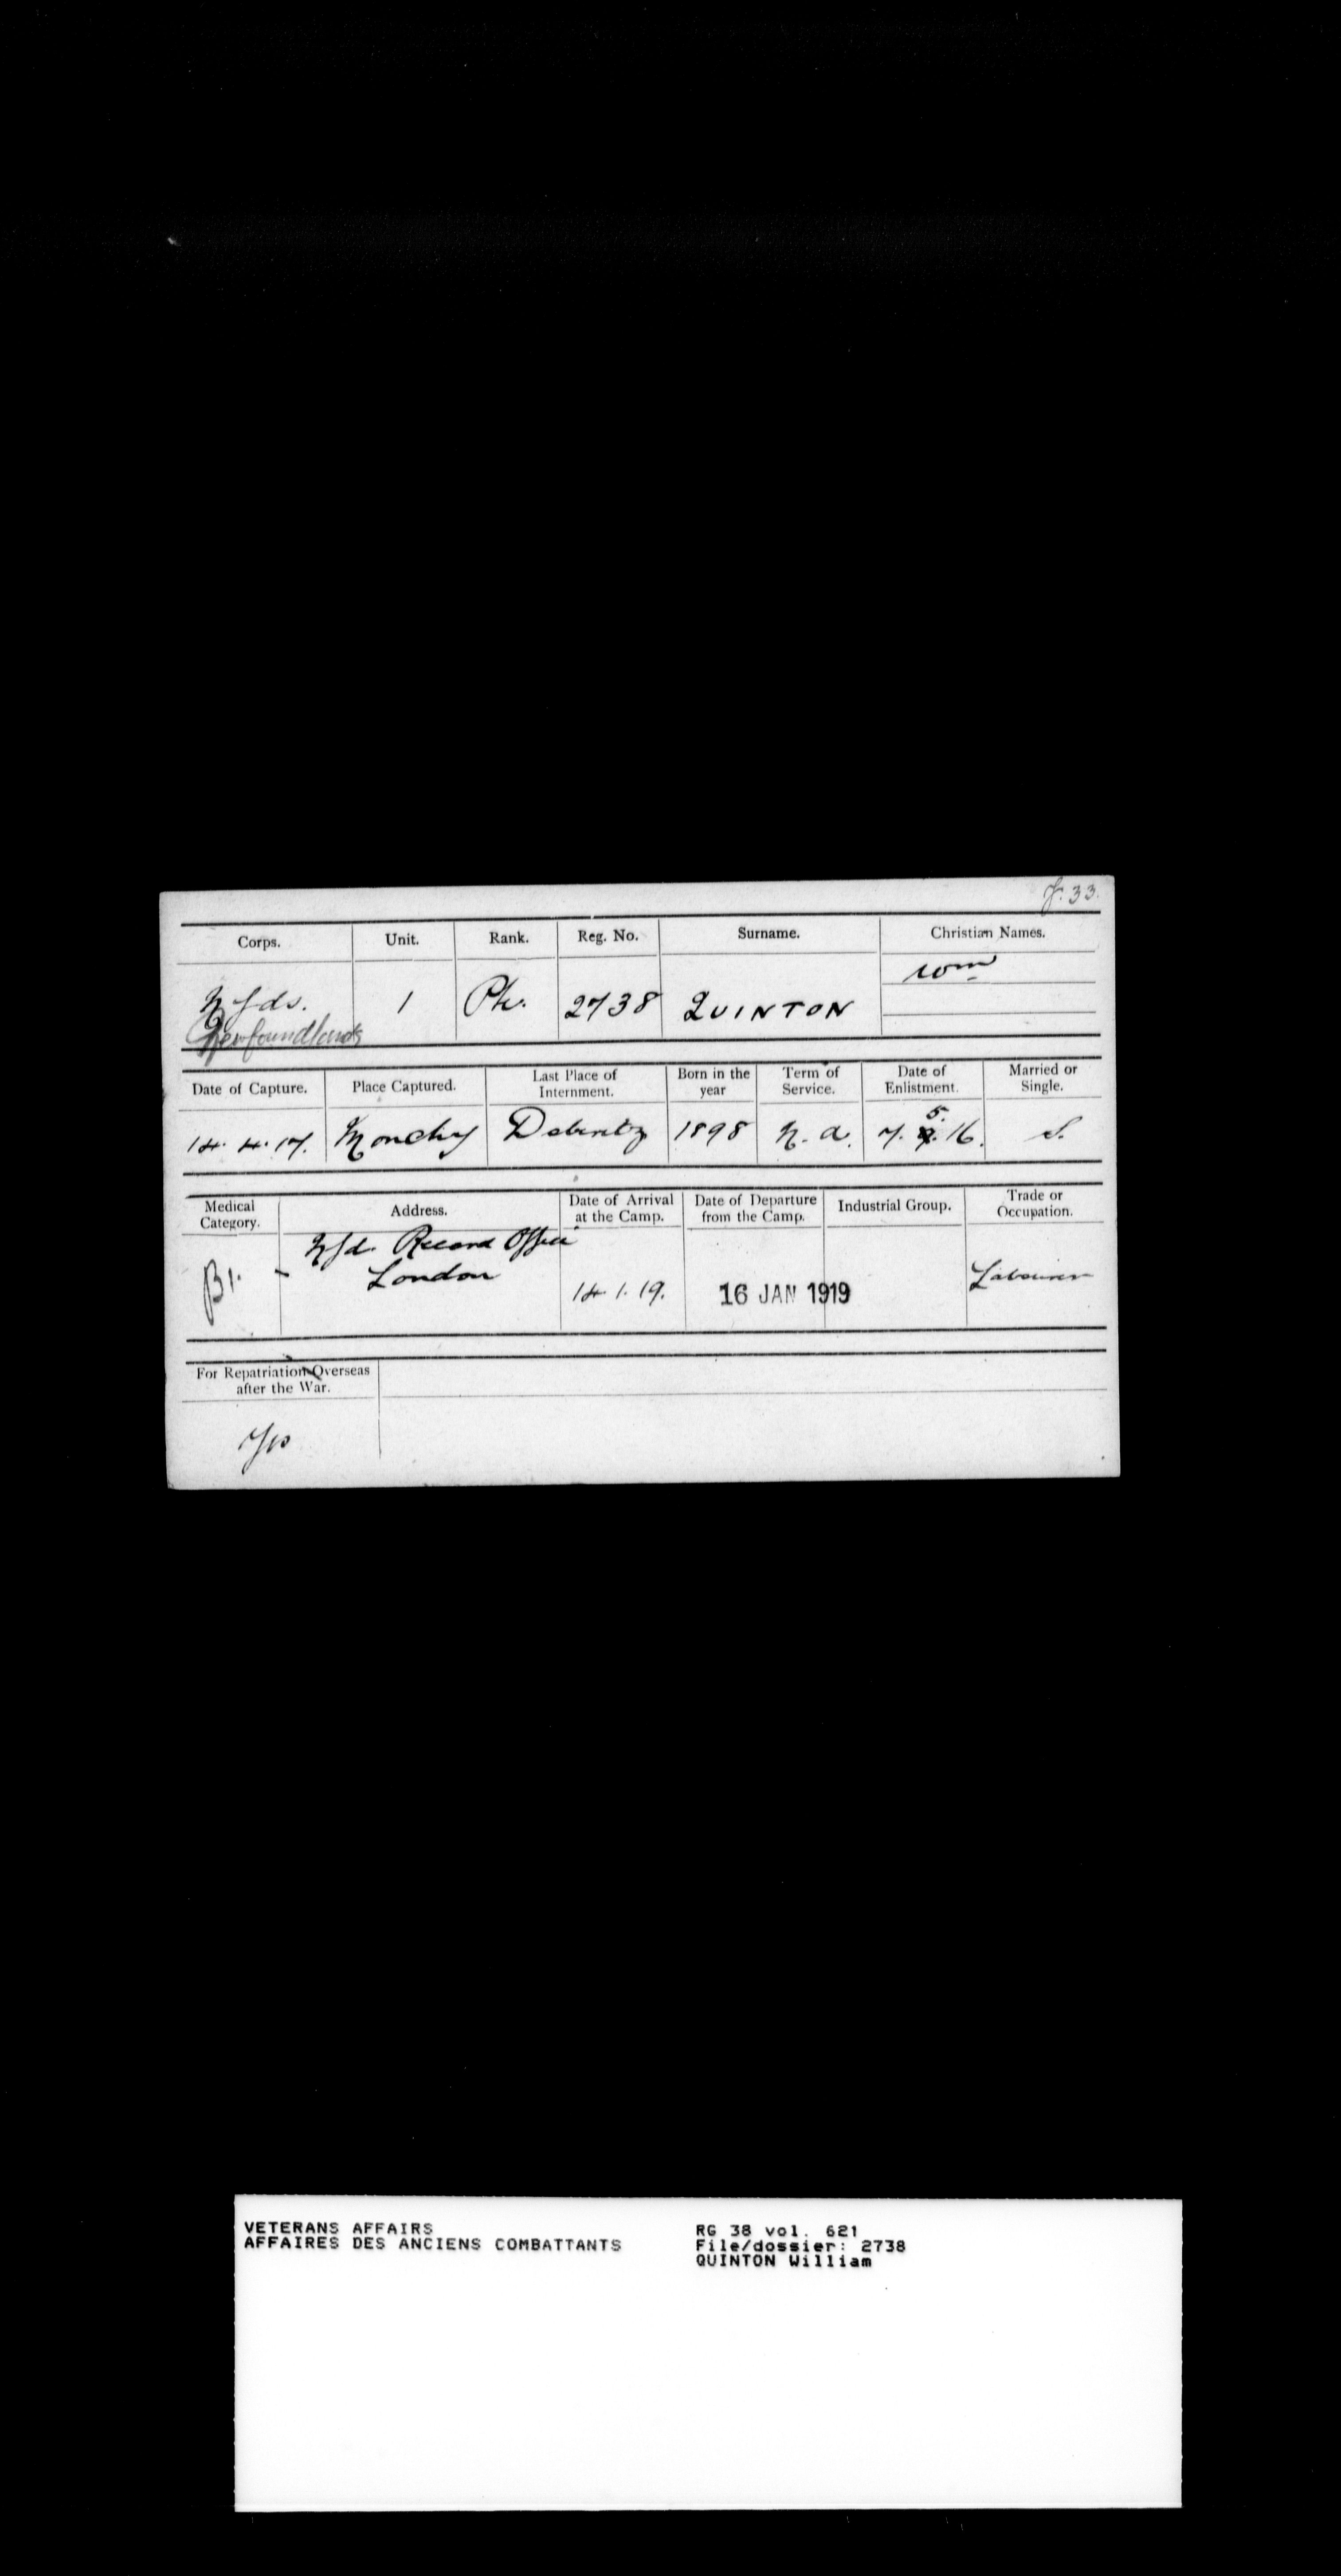 J. 33.
Corps. Unit. Rank. Reg. No. Surname. Christian Names.
Nfds. 1 Pte. 2738 QUINTON Wm
Newfoundlands
Date of Capture. Place Captured. Last Place of Internment. Born in the year Term of Service. Date of Enlistment. Married or Single.
14. 4. 17. Monchy Doberitz 1898 N. A. 7. 5. 16. S.
Medical Category. Address. Date of Arrival at the Camp. Date of Departure from the Camp. Industrial Group. Trade or Occupation.
Nfd. Record Office
B1. - London 14. 1. 19. 16 JAN 1919 Labourer
For Repatriation Overseas
after the War.
Yes
VETERANS AFFAIRS
AFFAIRES DES ANCIENS COMBATTANTS
RG 38 vol. 621
File/dossier: 2738
QUINTON William